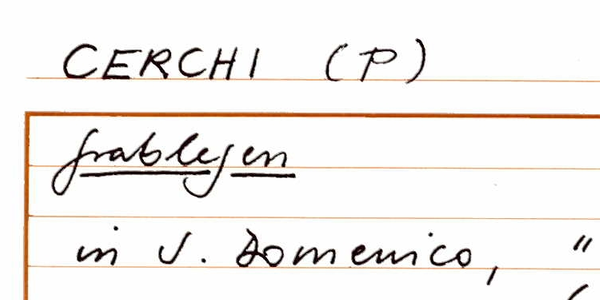 CERCHI (P)
grablegen
in S. Domenico, "